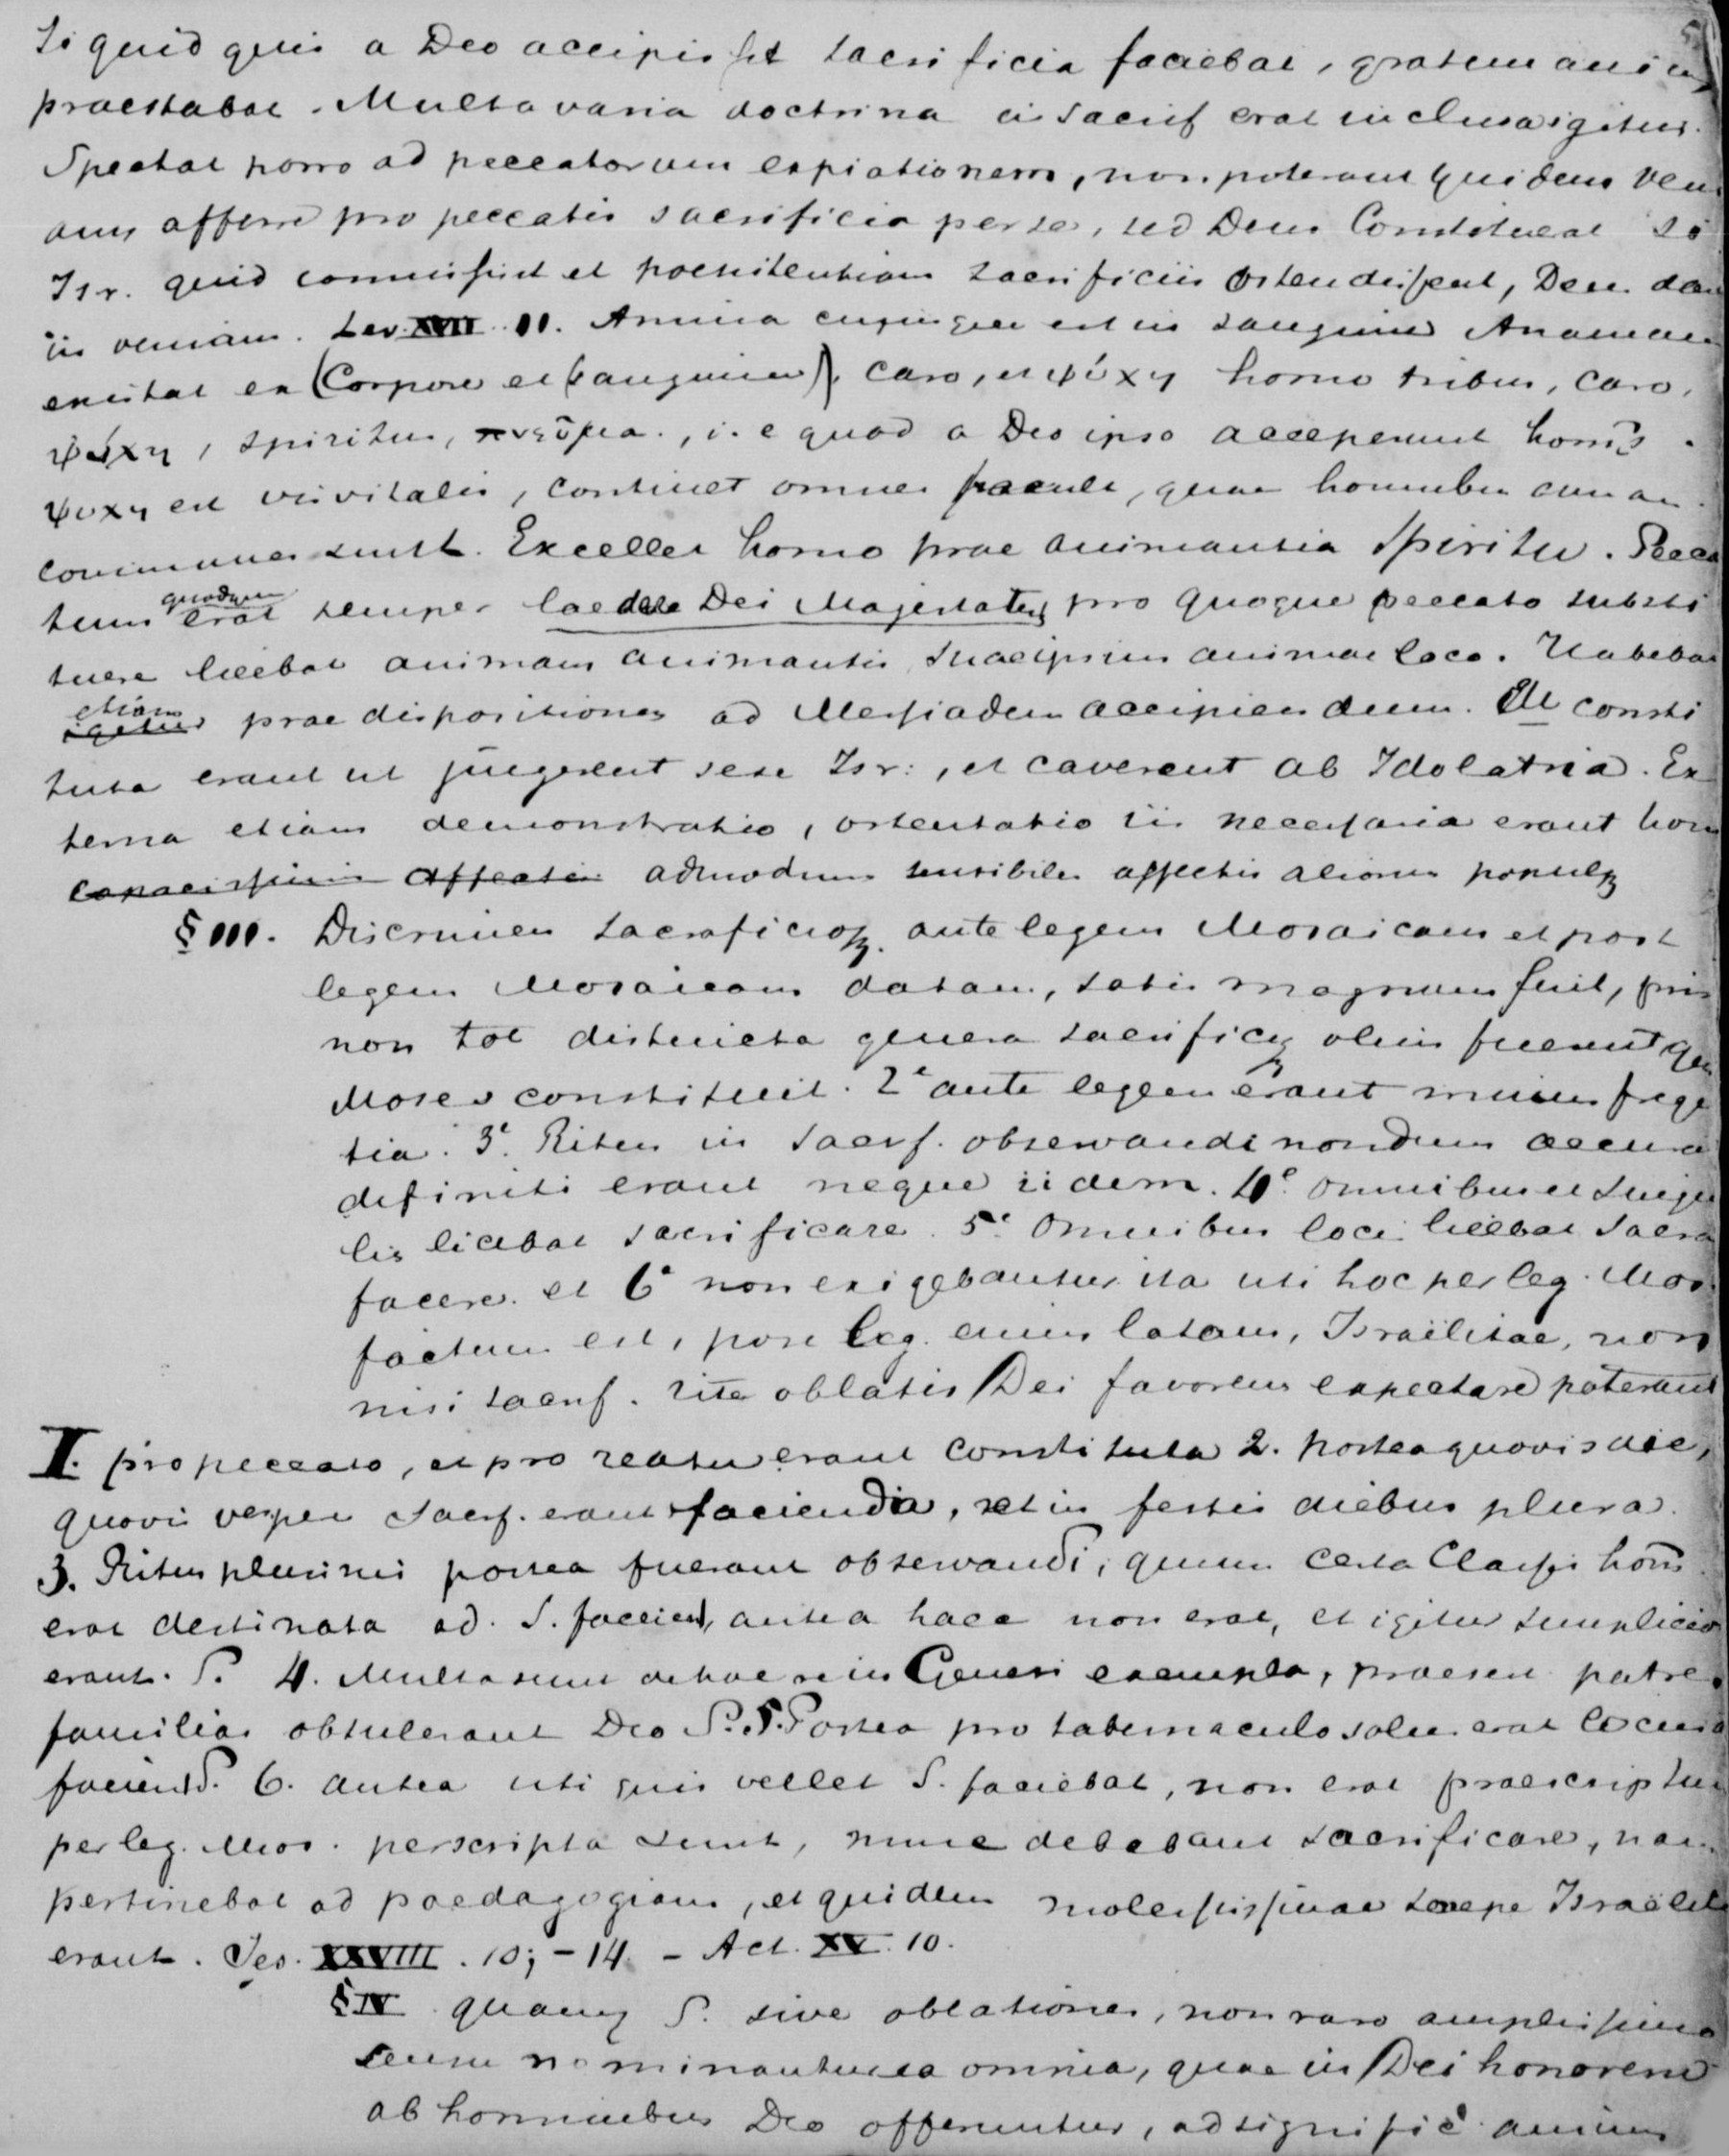 Si quid quis a Deo accepisset sacrificia faciebat, gratum anim
praestabat. Multa varia doctrina in sacrif erat inclusa igitur.
Spectat porro ad peccatorum expiationem, non poterant quidem ven
am afferre pro peccatis sacrificia per se, sed Deus Constituerat si
Isr. quid commisissent et poenitentiam sacrificiis ostendissent, Deum
iis veniam. Lev. XVII. 11. Anima cujusque est in sanguine
existat ex (Corpore et sanguine), caro, et ψύχη homo tribus, caro,
ψύχη, spiritus, πνεῦμα., i. e quod a Deo ipso acceperunt hom̄s.
ψυχη est vis vitalis, continet omnes facult, quae hominibus cum an.
communes sunt. Excellet homo prae animantia Spiritu. Pecca
tum quodvum erat semper laedere Dei Majestatem pro quoque peccato substi
tuere licebat animam animantis suaeipsius animae loco. Habebat
igitur etiam praedispositiones ad Messiadem accipiendum. consti
tuta erant ut jungerent sese Isr:, et caverent ab Idolatria. Ex
terna etiam demonstratio, ostentatio iis necessaria erant hom
affectis admodum sensibiles affectis aliorum populor
§ III. Discrimen sacrificior. ante legem Mosaicam et post
legem Mosaicam datam, satis magnum fuit, pri
non tot distincta genera sacrificior olim fuerunt qu
Moses constituit. 2° ante legem erant minus frequ
tia. 3° Ritus in Sacrf. observandi nondum accura
definiti erant neque iidem. 4° omnibus et singu
lis licebat sacrificare. 5° Omnibus locis licebat Sacra
facere. et 6° non exigebantur ita uti hoc per leg. Mos.
factum est, post leg. enim latam, Israëlitae, non
nisi sacrif. rite oblatis Dei favorem expectare poterant
I. pro peccato, et pro reatu erant constituta 2. postea quovis die,
quovis vespere Sacrf. erant facienda, et in festis diebus plura.
3. Ritus plurimi postea fuerant observandi, quum certa Classis hom̄
erat destinata ad. S. faciend, antea haec non erat, et igitur simplicior
erant. S. 4. Multa sunt de hac re in Genesi exempla, praesert patres
familias obtulerant Deo S. 5. Postea pro tabernaculo solus erat locus
faciend S. 6. antea uti quis vellet S. faciebat, non erat praescriptum
per leg. Mos. perscripta sunt, nunc debebant sacrificare, nam
pertinebat ad paedagogiam, et quidem molestissimae saepe Israëlit
erant. Jes. XXVIII. 10; - 14. - Act. XV. 10.
§ IV quamq S. sive oblationes, non raro amplissimo
sensu nominantur ea omnia, quae in Dei honorem
ab hominibus Deo offeruntur, ad signific animum